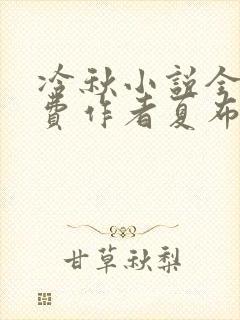 冷秋小说全
费作者夏布
甘草秋梨